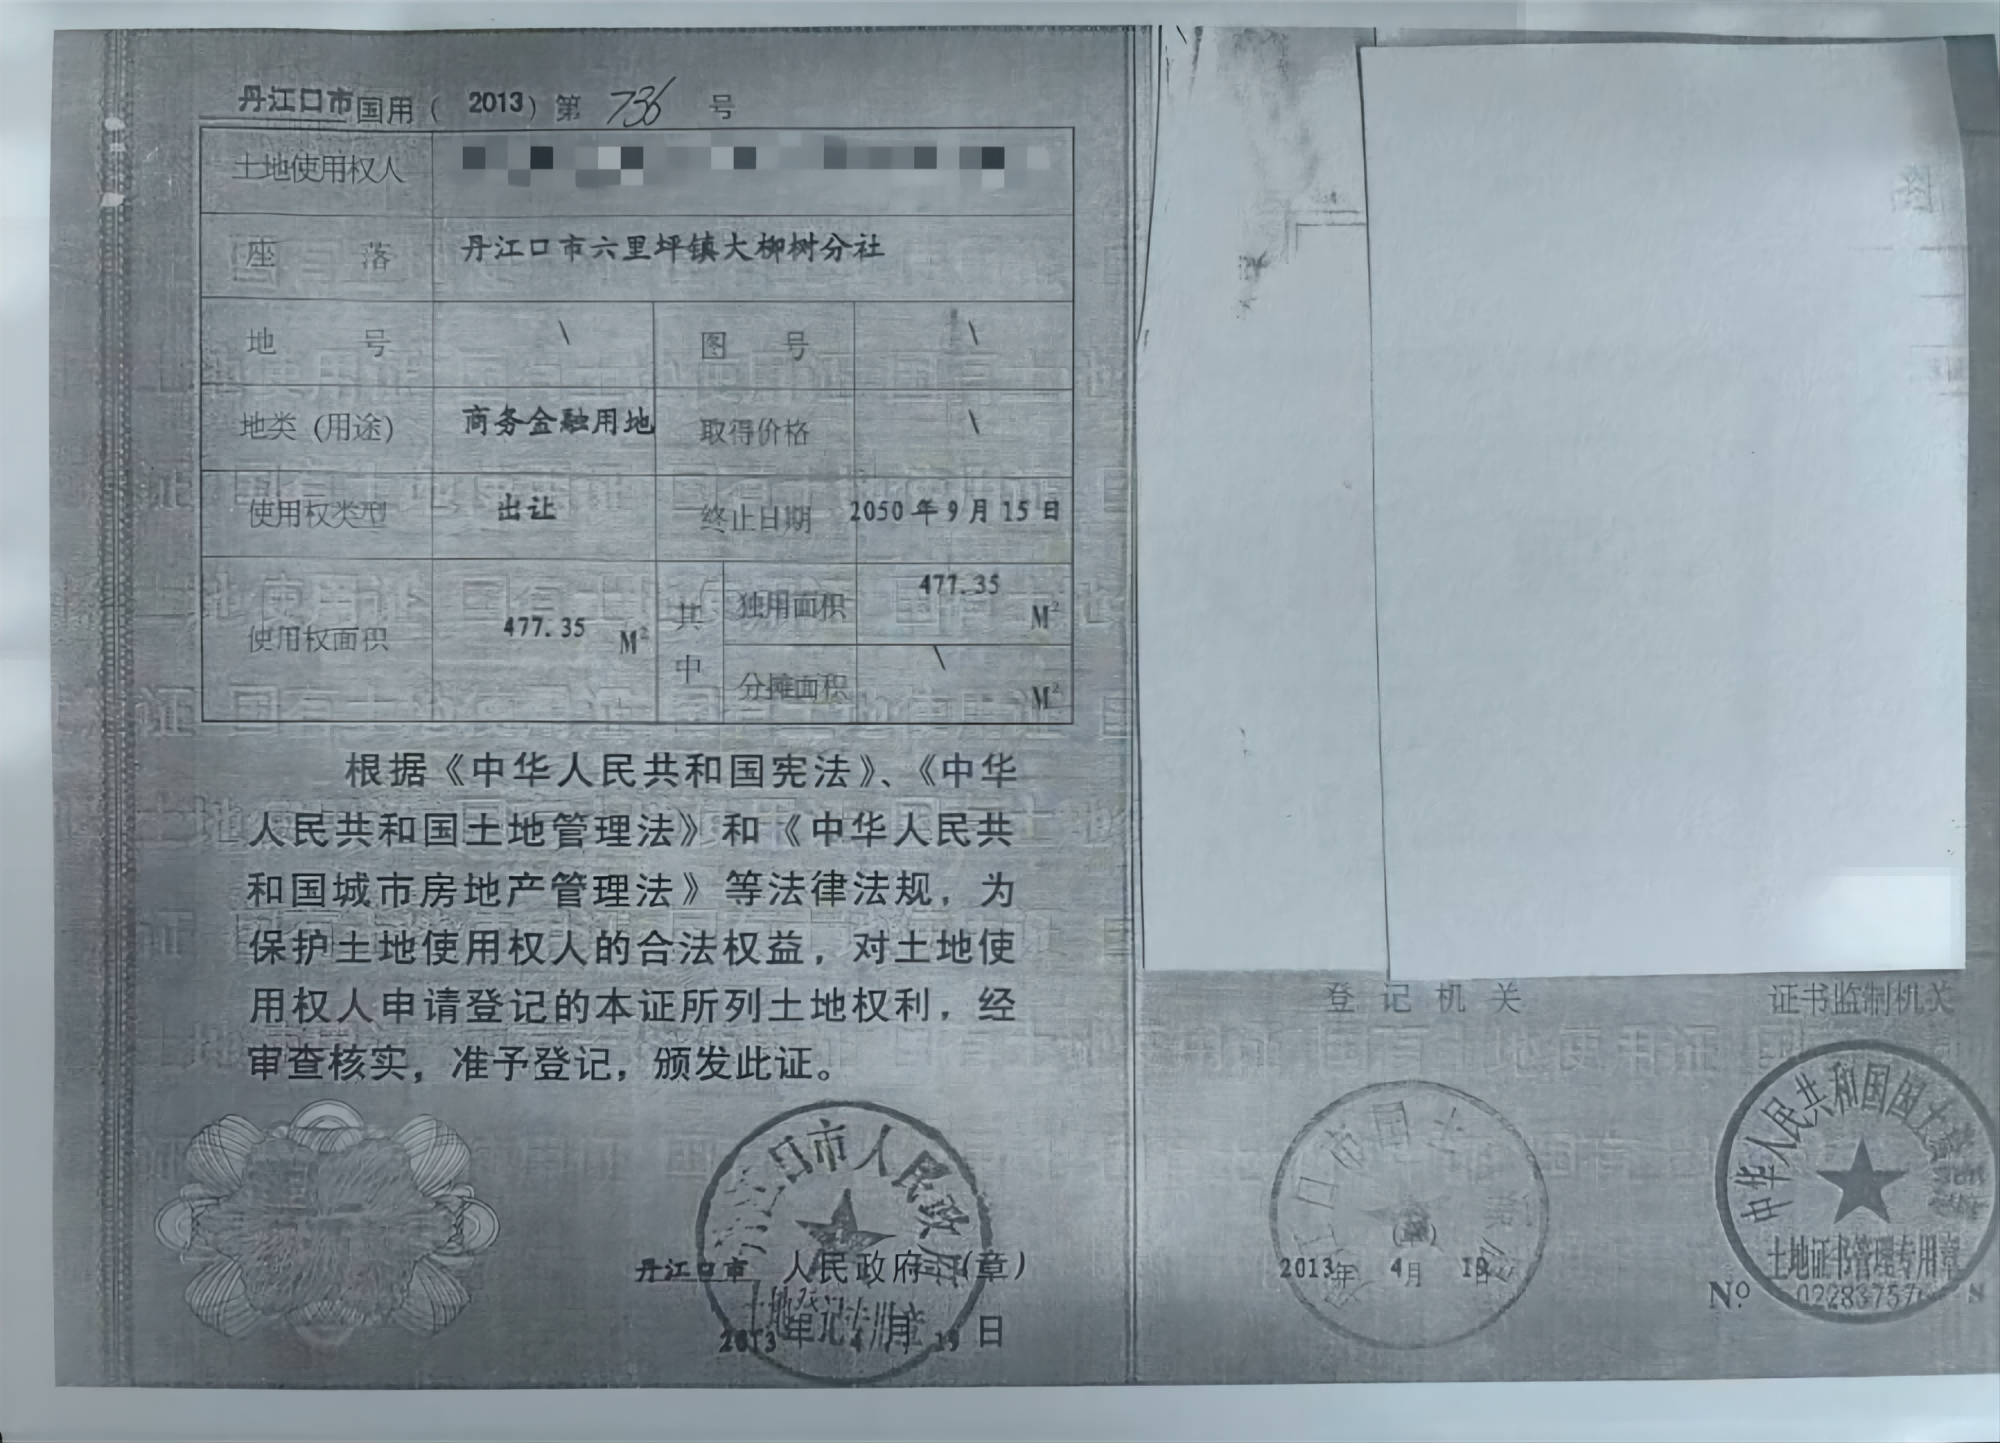 丹江口市国用（2013）第 736 号
土地使用权人
座落 丹江口市六里坪镇大柳树分社
地号 \ 图号 \
地类（用途） 商务金融用地 取得价格 \
使用权类型 出让 终止日期 2050年9月15日
使用权面积 477.35 M² 其中 独用面积 477.35 M²
分摊面积 \ M²
根据《中华人民共和国宪法》、《中华
人民共和国土地管理法》和《中华人民共
和国城市房地产管理法》等法律法规，为
保护土地使用权人的合法权益，对土地使
用权人申请登记的本证所列土地权利，经
审查核实，准予登记，颁发此证。
口市人民政府
丹江口市 人民政府（章）
土地登记专用章
2013年 4月 19日
登记机关
江口市国土
（章）
2013年 4月 19日
证书监制机关
中华人民共和国国土资源部
土地证书管理专用章
№ 02283757